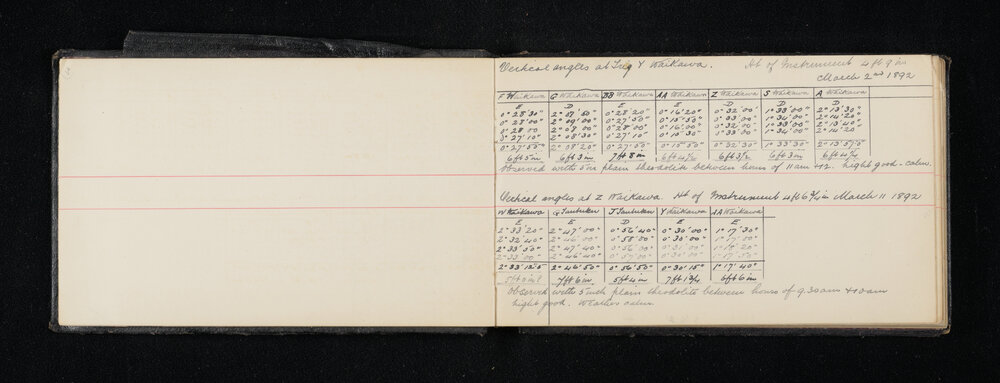 Vertical angles at Trig Y Waikawa. Ht of Instrument 4ft 9in
March 2nd 1892
F Waikawa G Waikawa BB Waikawa AA Waikawa Z Waikawa S Waikawa A Waikawa
E D E E D D D
0° 28' 30" 2° 07' 50" 0° 28' 20" 0° 16' 20" 0° 32' 00" 1° 33' 00" 2° 13' 30"
0° 28' 00" 2° 09' 00" 0° 27' 50" 0° 15' 50" 0° 33' 00" 1° 34' 00" 2° 14' 20"
0° 28' 00 2° 08' 00" 0° 28' 00" 0° 16' 00" 0° 32' 00" 1° 33' 00" 2° 13' 40"
0° 27' 10" 2° 08' 30" 0° 27' 10" 0° 15' 30" 1° 33' 00" 1° 34' 00" 2° 14' 20
0° 27' 55" 2° 08' 20" 0° 27' 50" 0° 15' 50" 0° 32' 30" 1° 33' 30" 2° 13' 57.5
6ft 5in 6ft 3in 7ft 8in 6ft 4½ 6ft 3½ 6ft 3in 6ft 4¼
Observed with 5in plain theodolite between hours of 11am & 12. light good - calm.
Vertical angles at Z Waikawa. Ht of Instrument 4ft 6¾in March 11 1892
W Waikawa G Tautuku J Tautuku Y Waikawa AA Waikawa
E E D E E
2° 33' 20" 2° 47' 00" 0° 56' 40" 0° 30' 00" 1° 17' 30"
2° 32' 40" 2° 46' 00" 0° 58' 00" 0° 30' 00" 1° 17' 00"
2° 33' 50" 2° 47' 40" 0° 56' 00" 0° 31' 00" 1° 18' 20"
2° 33' 00" 2° 46' 40" 0° 57' 00" 0° 30' 00" 1° 17' 50"
2° 33' 12.5 2° 46' 50" 0° 56' 55" 0° 30' 15" 1° 17' 40"
7ft 6in 5ft 4in 7ft 1¾ 6ft 6in
Observed with 5inch plain theodolite between hours of 9.30am & 10am
light good. Weather calm.